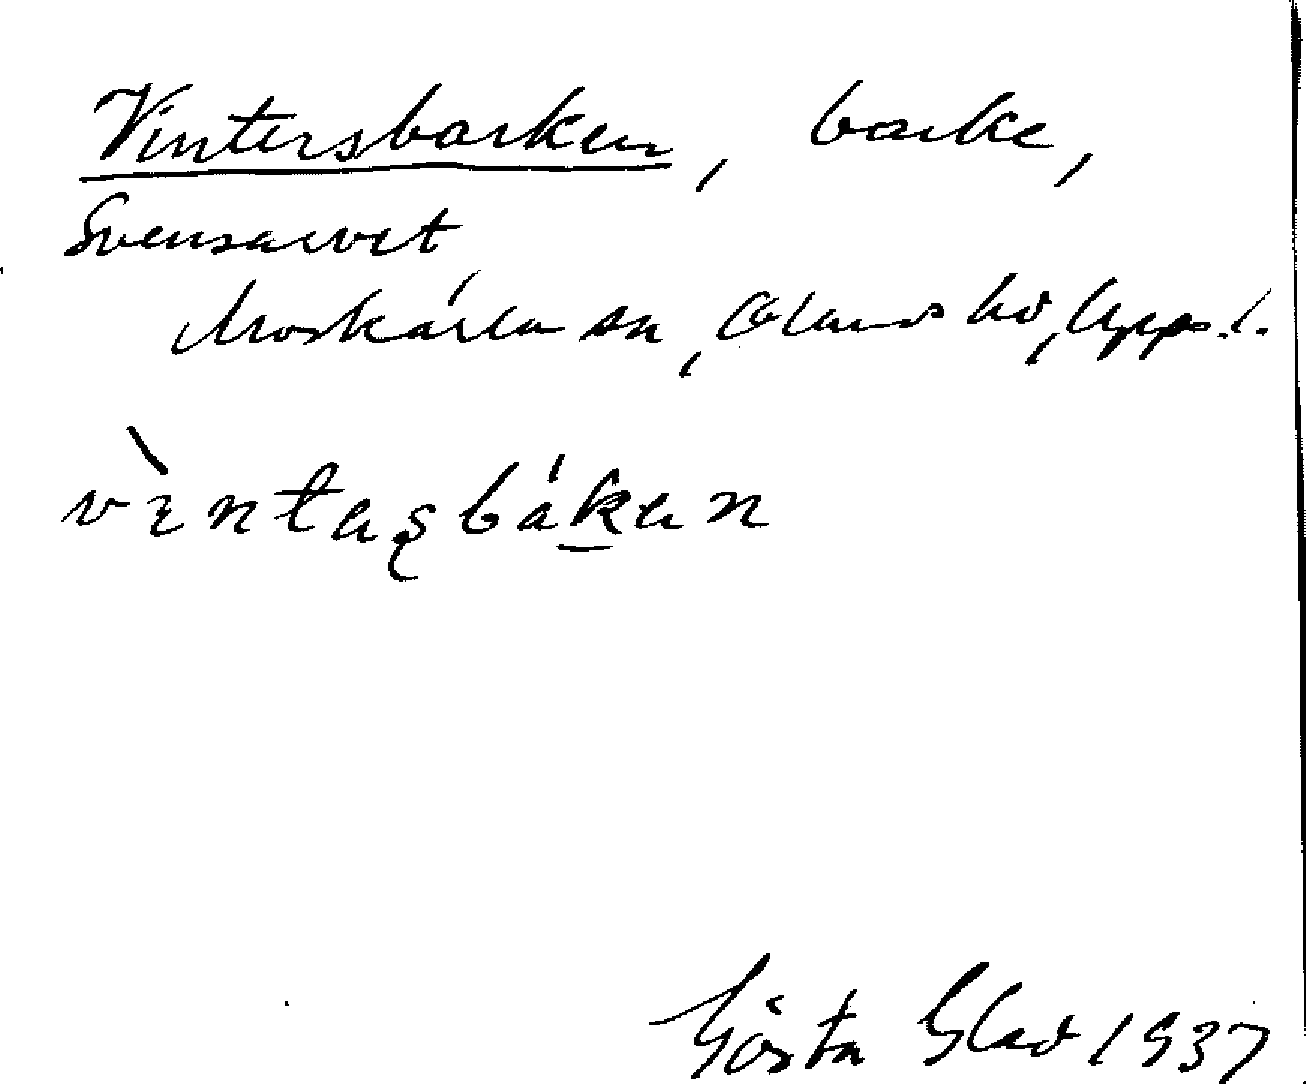 Vintersbacken, backe,
Svensarvet
Morkarla sn, Olands hd, Uppsl.
vìntersbákan
Gösta Glad 1937